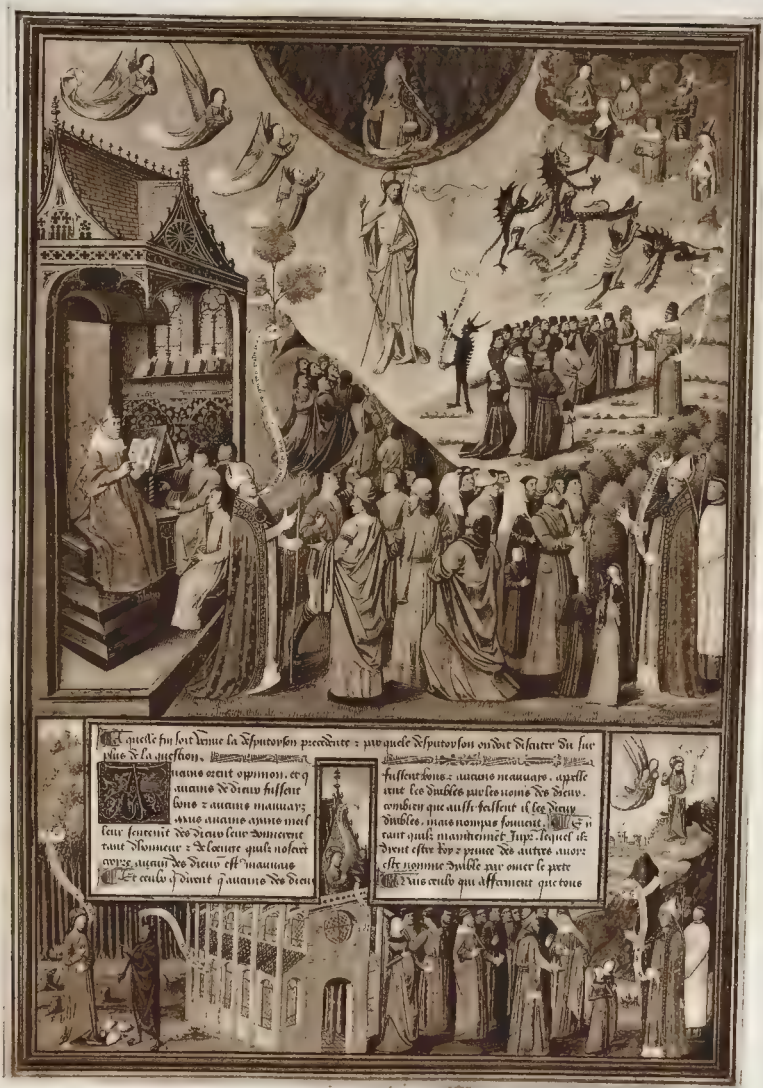 quelle fin soit venue la desputoyson precedente : par quele desputoyson on doit discuter du sur
plus de la question.
Aucuns orent oppinion. et q
aucuns de dieux fussent
bons z aucuns mauuaiz
Mais aucuns ayans meil
leur sentence des dieux leur donnerent
tant dhonneur z de loenge quilz noserent
croire aucun des dieux est mauuais
Et ceulx q dirent q aucuns des dieux
fussent bons : aucuns mauuais. appelle
rent les diables par les noms des dieux.
combien que aussi feissent il les dieux
diables. mais non pas souuent. Et en
tant quilz maintiennet Jupr. lequel ilz
dient estre roy z prince des autres auoir
este nomme dyable par omer le poete
Mais ceulx qui afferment que tous